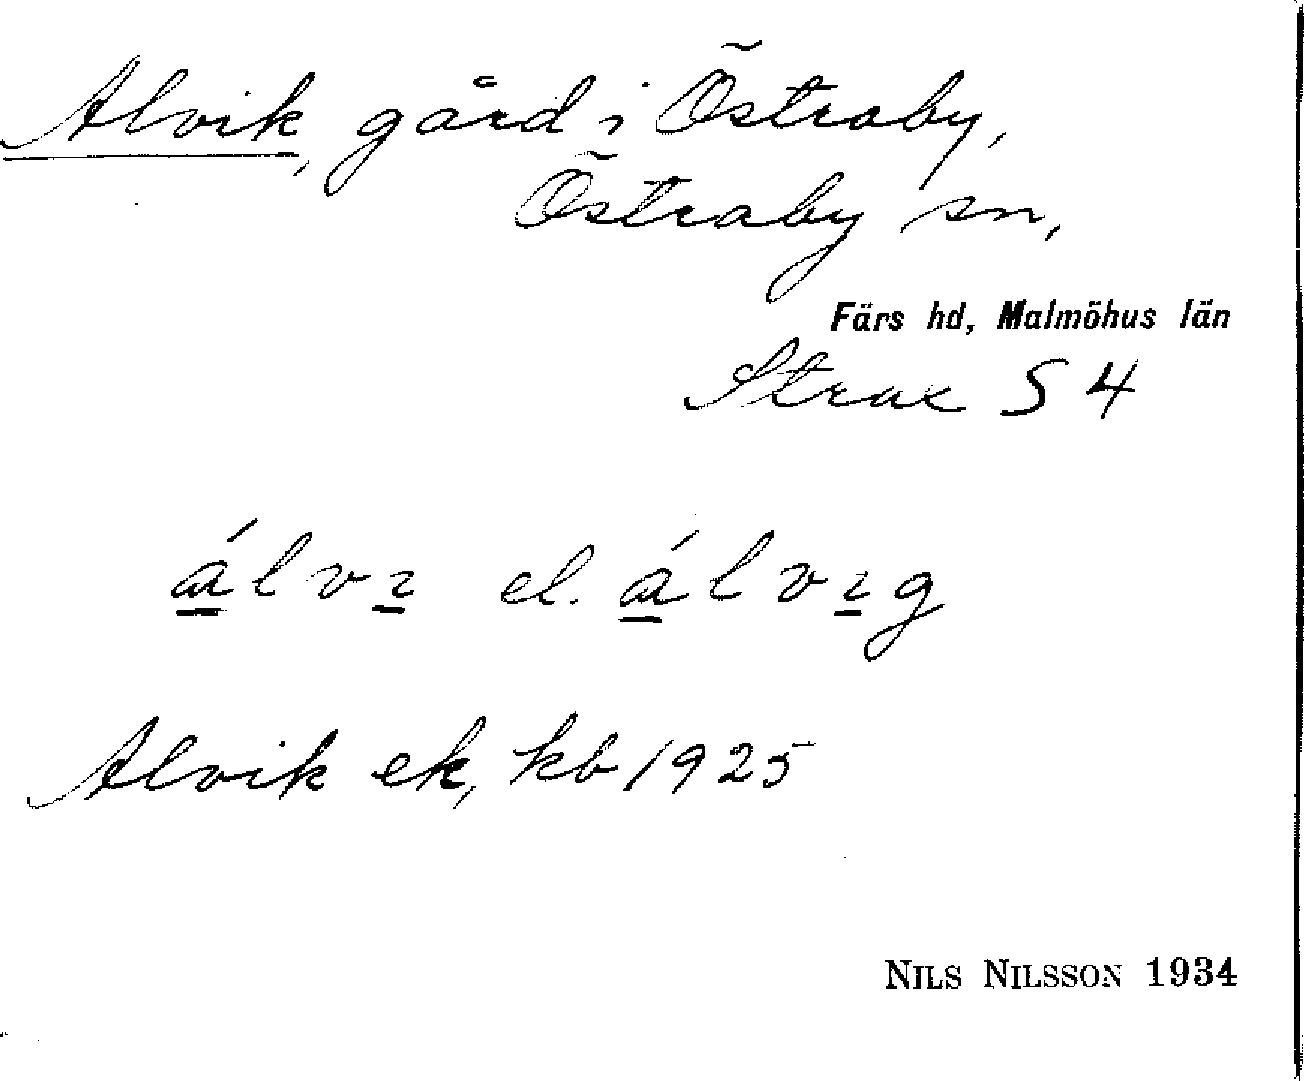 Alvik, gård i Östraby,
Östraby sn,
Färs hd, Malmöhus län
Strax S 4
álvɪ el. álvɪg
Alvik ek, kb 1925
NILS NILSSON 1934